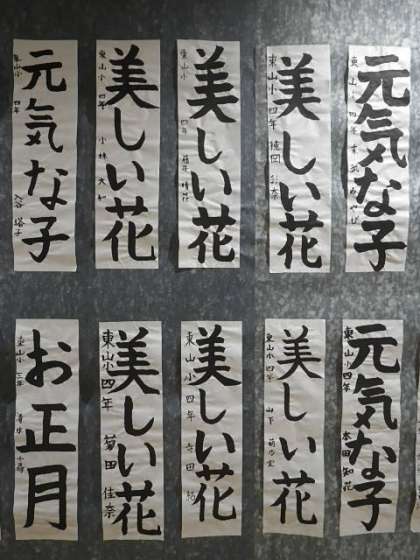 元気な子
東山小 四年
美しい花
東山小 四年 小林 大和
美しい花
東山小 四年
美しい花
東山小 四年
元気な子
東山小 四年
お正月
東山小 三年
美しい花
東山小四年 菊田 佳奈
美しい花
東山小 四年 寺田
美しい花
東山小四年 山下
元気な子
東山小四年 本田知花